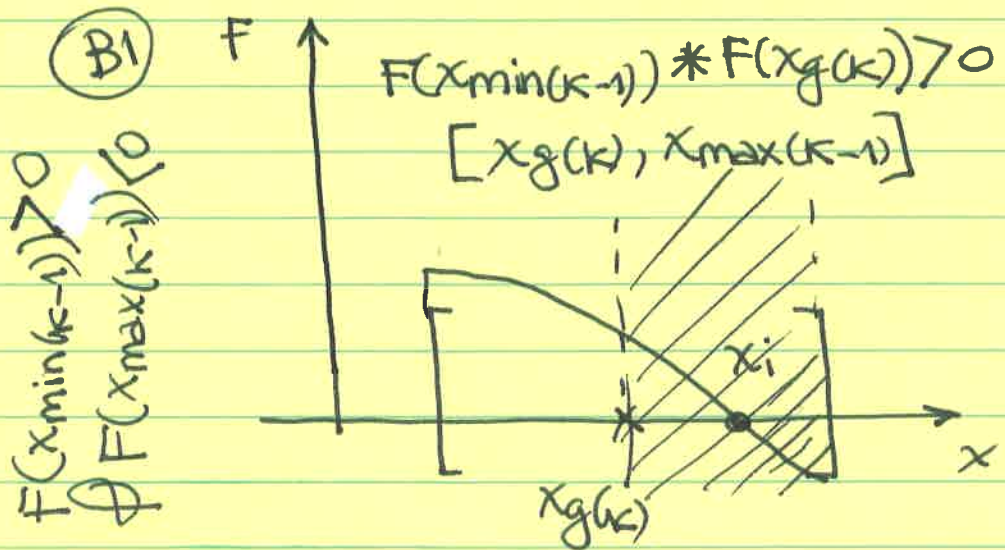 B1
F
F(xmin(k-1)) * F(xg(k)) > 0
[xg(k), xmax(k-1)]
F(xmin(k-1)) > 0
F(xmax(k-1)) < 0
xi
x
xg(k)